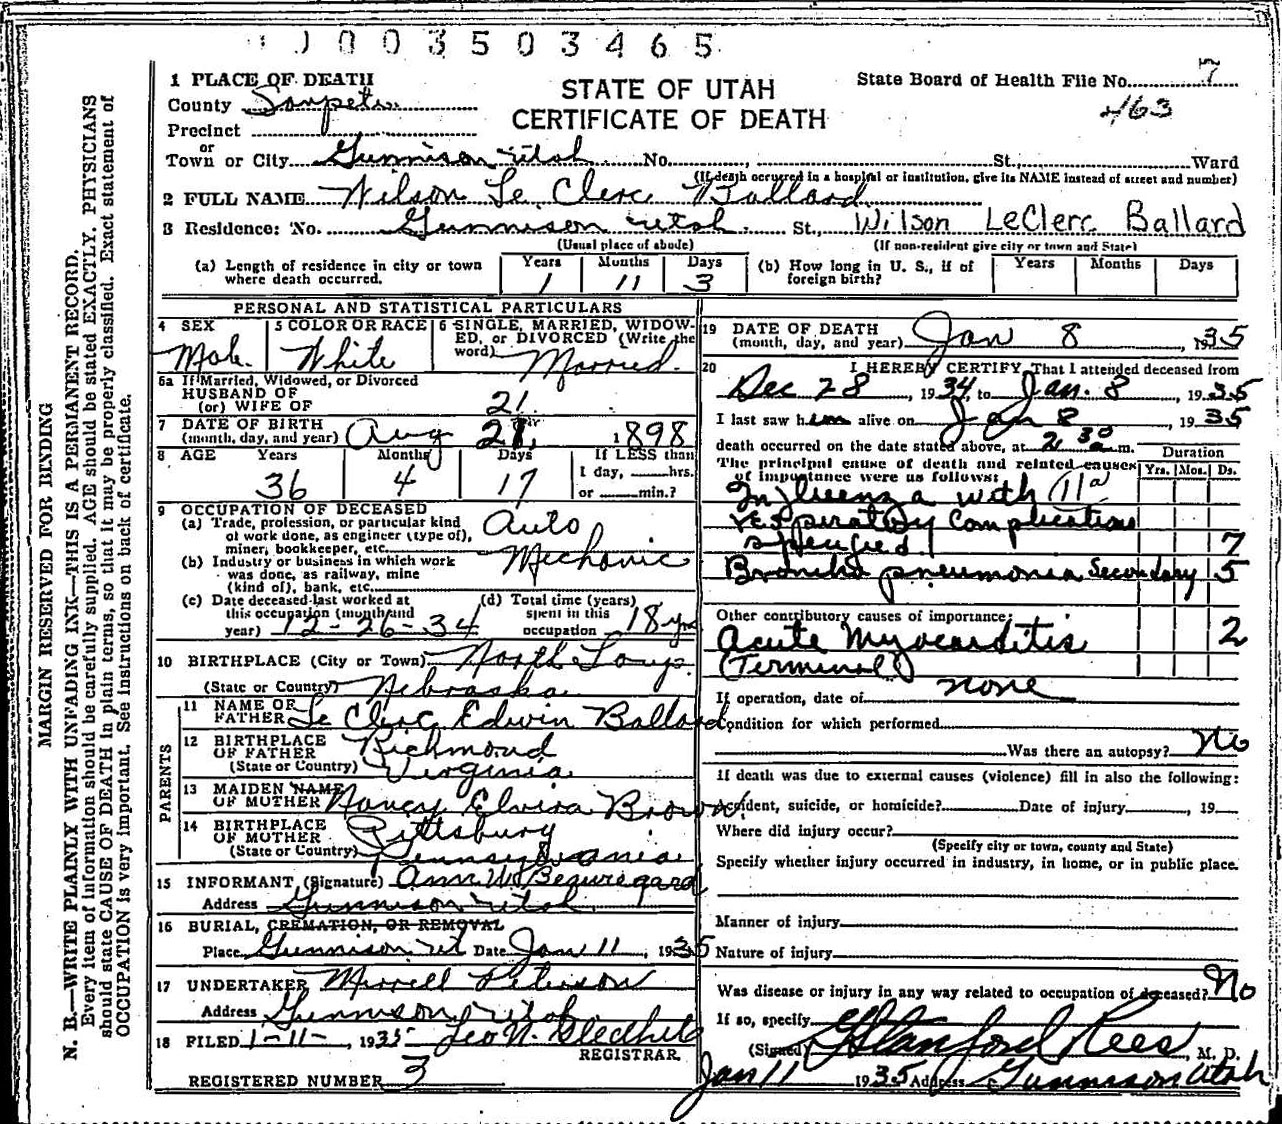 0003503465
1 PLACE OF DEATH
County Sanpete
Precinct
or
Town or City Gunnison Utah No. , St., Ward
STATE OF UTAH
CERTIFICATE OF DEATH
State Board of Health File No. 7
463
(If death occurred in a hospital or institution, give its NAME instead of street and number)
2 FULL NAME Wilson Le Clerc Ballard
3 Residence: No. Gunnison Utah St., Wilson LeClerc Ballard
(Usual place of abode) (If non-resident give city or town and State)
(a) Length of residence in city or town where death occurred. Years 1 Months 11 Days 3
(b) How long in U. S., if of foreign birth? Years Months Days
PERSONAL AND STATISTICAL PARTICULARS
4 SEX Male
5 COLOR OR RACE White
6 SINGLE, MARRIED, WIDOWED, OR DIVORCED (Write the word) Married
5a If Married, Widowed, or Divorced
HUSBAND OF
(or) WIFE OF
21
7 DATE OF BIRTH
(month, day, and year) Aug 21, 1898
8 AGE Years 36 Months 4 Days 17
If LESS than
1 day, hrs.
or min.?
9 OCCUPATION OF DECEASED
(a) Trade, profession, or particular kind
of work done, as engineer (type of),
miner, bookkeeper, etc. Auto
Mechanic
(b) Industry or business in which work
was done, as railway, mine
(kind of), bank, etc.
(c) Date deceased last worked at
this occupation (month and
year) 12-26-34
(d) Total time (years)
spent in this
occupation 18 yrs
10 BIRTHPLACE (City or Town) North Loup
(State or Country) Nebraska
PARENTS
11 NAME OF
FATHER Le Clerc Edwin Ballard
12 BIRTHPLACE
OF FATHER Richmond
(State or Country) Virginia
13 MAIDEN NAME
OF MOTHER Nancy Elvira Brown
14 BIRTHPLACE
OF MOTHER Pittsburg
(State or Country) Pennsylvania
15 INFORMANT (Signature) Ann W. Beauregard
Address Gunnison Utah
16 BURIAL, CREMATION, OR REMOVAL
Place Gunnison Ut Date Jan 11, 1935
17 UNDERTAKER Merrell Peterson
Address Gunnison Utah
18 FILED 1-11-, 1935 Leo N. Gledhill
REGISTRAR.
REGISTERED NUMBER 3
19 DATE OF DEATH
(month, day, and year) Jan 8, 1935
20 I HEREBY CERTIFY, That I attended deceased from
Dec 28, 1934, to Jan. 8, 1935
I last saw him alive on Jan 8, 1935
death occurred on the date stated above, at 2:30 a m.
The principal cause of death and related causes
of importance were as follows:
Duration
Yrs. Mos. Ds.
Influenza with 11a
respiratory Complications
specified 7
Broncho pneumonia Secondary 5
Other contributory causes of importance:
Acute Myocarditis 2
(Terminal)
If operation, date of none
Condition for which performed
Was there an autopsy? No
If death was due to external causes (violence) fill in also the following:
Accident, suicide, or homicide? Date of injury , 19
Where did injury occur?
(Specify city or town, county and State)
Specify whether injury occurred in industry, in home, or in public place.
Manner of injury
Nature of injury
Was disease or injury in any way related to occupation of deceased? No
If so, specify
(Signed) G Stanford Rees, M. D.
Jan 11 1935 Address Gunnison Utah
MARGIN RESERVED FOR BINDING
N. B.—WRITE PLAINLY WITH UNFADING INK—THIS IS A PERMANENT RECORD.
Every item of information should be carefully supplied. AGE should be stated EXACTLY. PHYSICIANS
should state CAUSE OF DEATH in plain terms, so that it may be properly classified. Exact statement of
OCCUPATION is very important. See instructions on back of certificate.